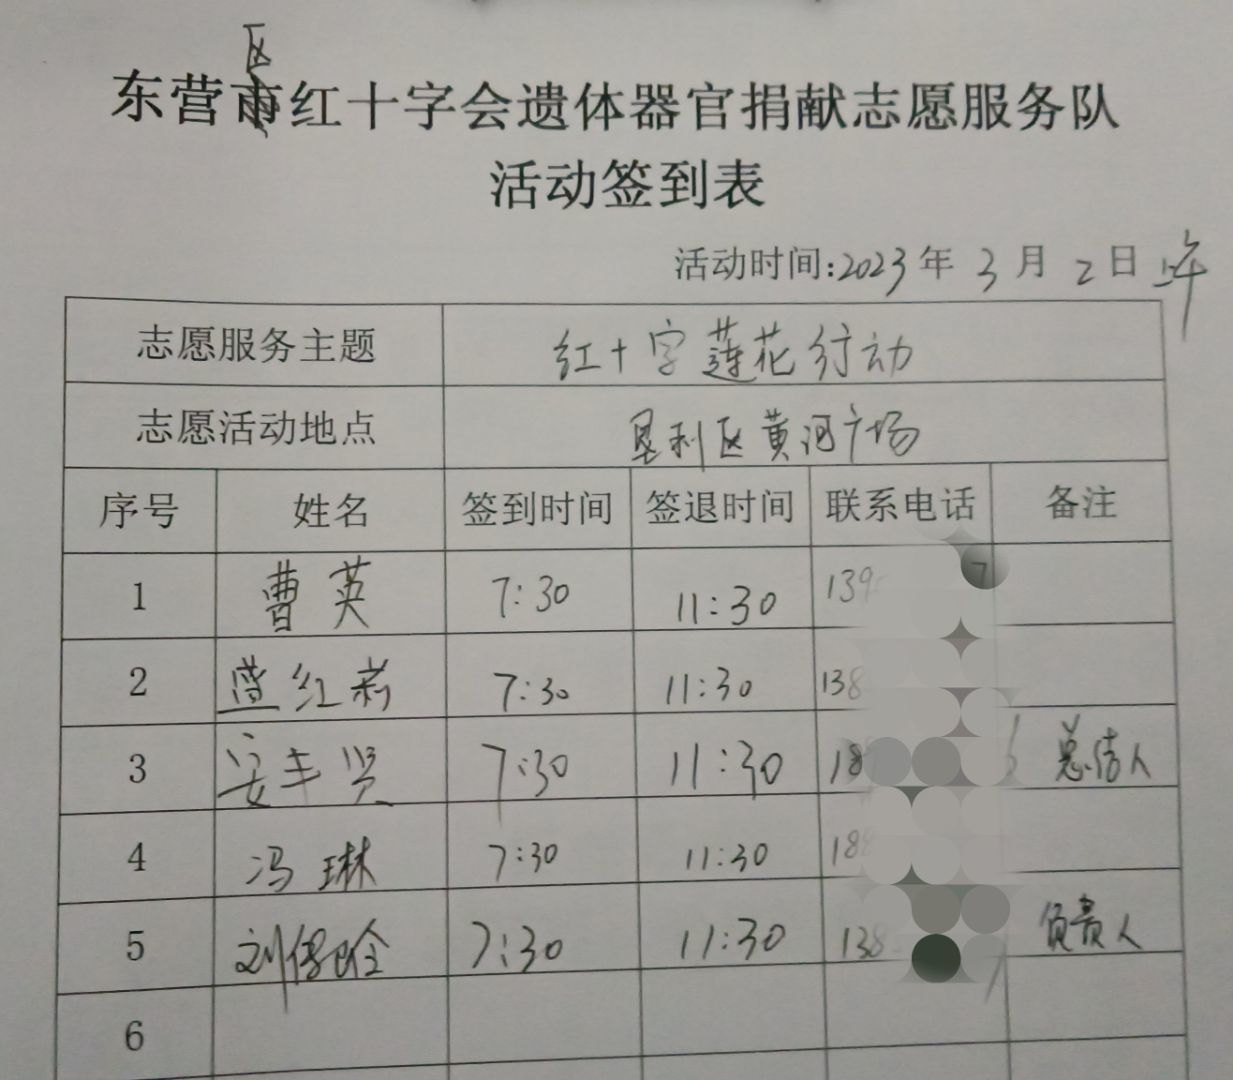 区
东营市红十字会遗体器官捐献志愿服务队
活动签到表
活动时间:2023年3月2日上午
志愿服务主题 红十字莲花行动
志愿活动地点 垦利区黄河广场
序号 姓名 签到时间 签退时间 联系电话 备注
1 曹英 7:30 11:30 139 7
2 红莉 7:30 11:30 138
3 安丰贤 7:30 11:30 18 总结人
4 冯琳 7:30 11:30 188
5 刘 7:30 11:30 138 负责人
6